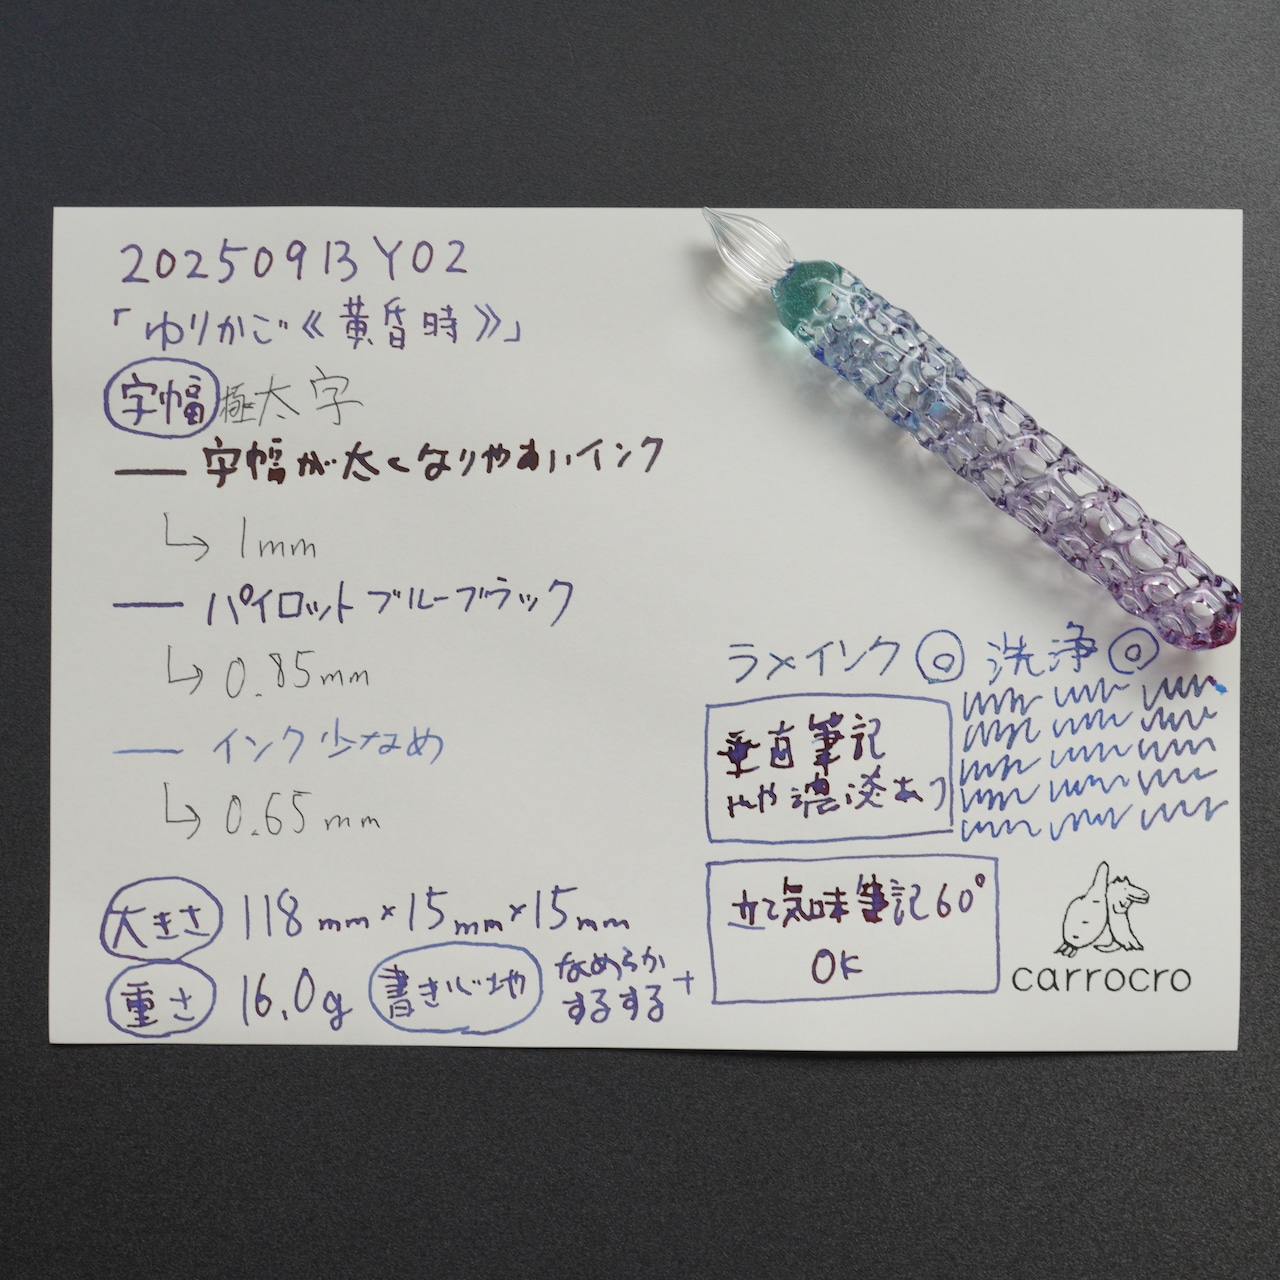 20250913Y02
「ゆりかご《黄昏時》」
字幅 極太字
字幅が太くなりやすいインク
1mm
パイロットブルーブラック
0.85mm
インク少なめ
0.65mm
大きさ 118mm×15mm×15mm
重さ 16.0g 書き心地 なめらか
するする+
ラメインク◎ 洗浄◎
垂直筆記
やや濃淡あり
立て気味筆記60°
OK
carrocro